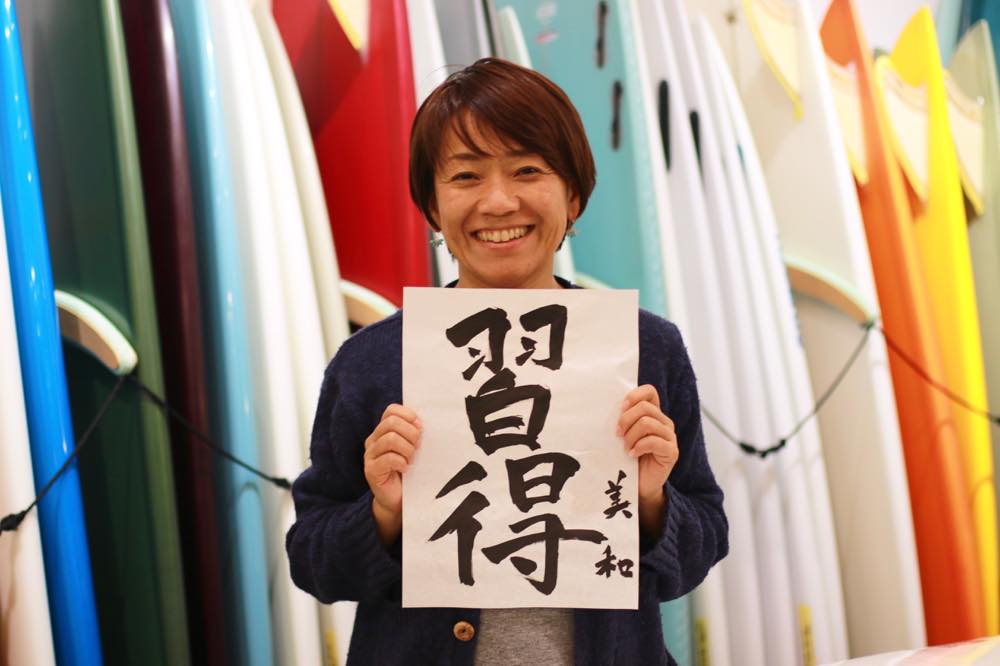 習得
美和